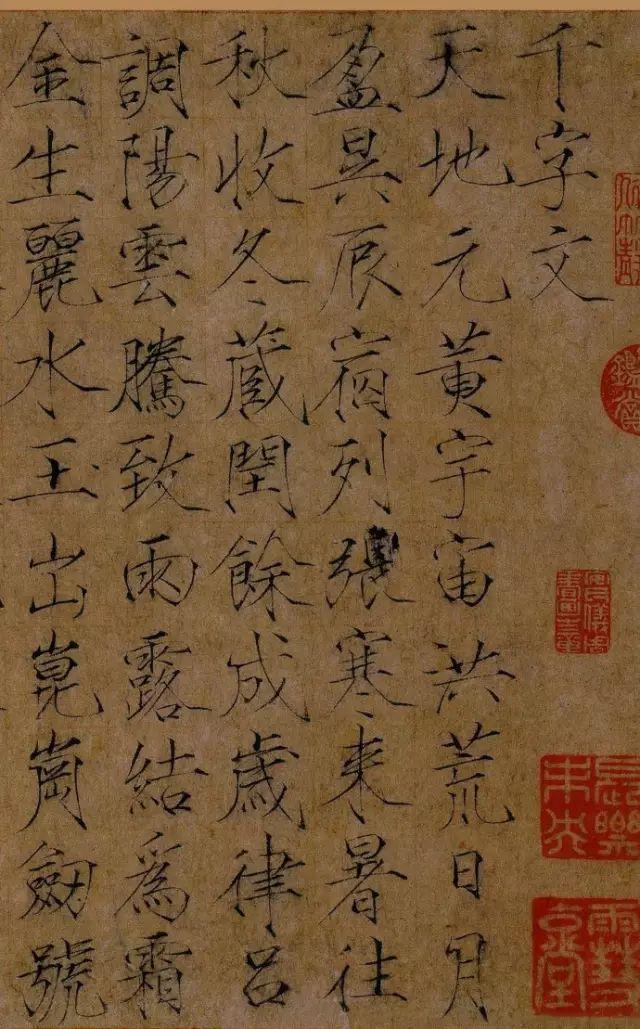 千字文
天地元黄宇宙洪荒日月
盈昃辰宿列張寒来暑往
秋收冬蔵閏餘成歳律吕
調陽雲騰致雨露結爲霜
金生麗水玉出崑崗劔號
長樂
未央